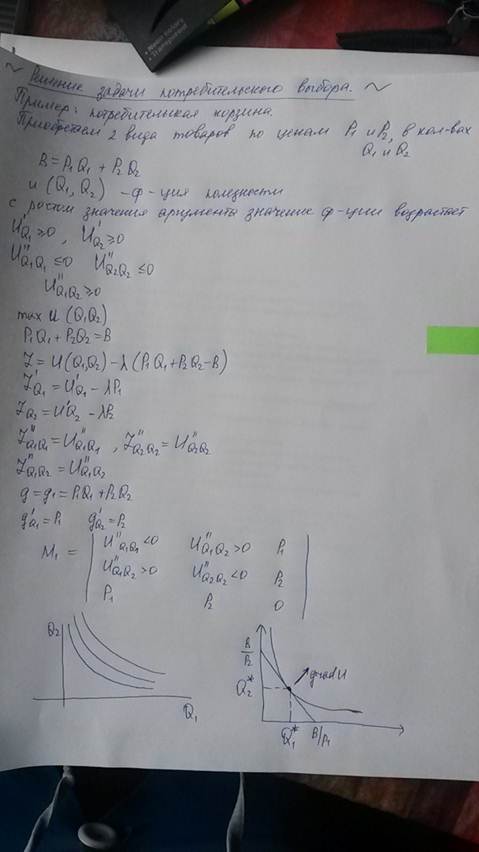 ~ Решение задачи потребительского выбора. ~
Пример: потребительская корзина.
Приобретаем 2 вида товаров по ценам P₁ и P₂, в кол-вах
Q₁ и Q₂
B = P₁Q₁ + P₂Q₂
u (Q₁, Q₂) – ф-ция полезности
с ростом значения аргумента значение ф-ции возрастает
U'Q₁ ≥ 0 , U'Q₂ ≥ 0
U''Q₁Q₁ ≤ 0 U''Q₂Q₂ ≤ 0
U''Q₁Q₂ ≥ 0
max U (Q₁Q₂)
P₁Q₁ + P₂Q₂ = B
Z = U(Q₁Q₂) – λ (P₁Q₁ + P₂Q₂ – B)
Z'Q₁ = U'Q₁ – λP₁
ZQ₂ = U'Q₂ – λP₂
Z''Q₁Q₁ = U''Q₁Q₁ , Z''Q₂Q₂ = U''Q₂Q₂
Z''Q₁Q₂ = U''Q₁Q₂
g = g₁ = P₁Q₁ + P₂Q₂
g'Q₁ = P₁ g'Q₂ = P₂
M₁ =
U''Q₁Q₁ < 0 U''Q₁Q₂ > 0 P₁
U''Q₁Q₂ > 0 U''Q₂Q₂ < 0 P₂
P₁ P₂ 0
Q₂
Q₁
B/P₂
grad U
Q₂*
Q₁*
B/P₁